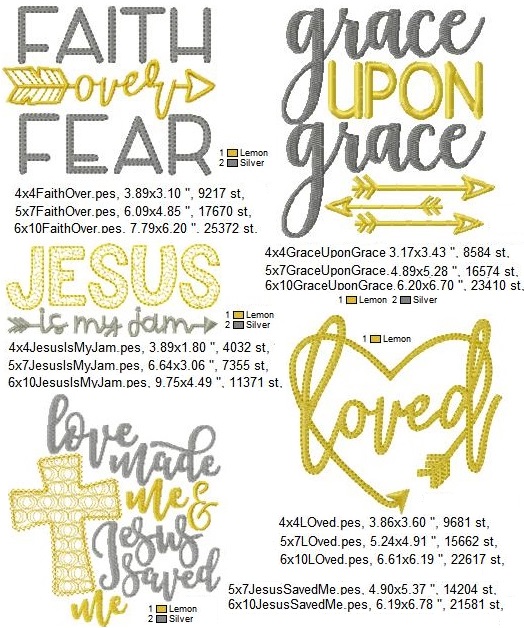 FAITH
over
FEAR
1 Lemon
2 Silver
4x4FaithOver.pes, 3.89x3.10 ", 9217 st,
5x7FaithOver.pes, 6.09x4.85 ", 17670 st,
6x10FaithOver.pes. 7.79x6.20 ". 25372 st.
grace
UPON
grace
4x4GraceUponGrace 3.17x3.43 ", 8584 st,
5x7GraceUponGrace.4.89x5.28 ", 16574 st,
6x10GraceUponGrace.6.20x6.70 ", 23410 st,
1 Lemon 2 Silver
JESUS
is my jam
1 Lemon
2 Silver
4x4JesusIsMyJam.pes, 3.89x1.80 ", 4032 st,
5x7JesusIsMyJam.pes, 6.64x3.06 ", 7355 st,
6x10JesusIsMyJam.pes, 9.75x4.49 ", 11371 st,
1 Lemon
loved
4x4LOved.pes, 3.86x3.60 ", 9681 st,
5x7LOved.pes, 5.24x4.91 ", 15662 st,
6x10LOved.pes, 6.61x6.19 ", 22617 st,
love
made
me &
Jesus
saved
me
1 Lemon
2 Silver
5x7JesusSavedMe.pes, 4.90x5.37 ", 14204 st,
6x10JesusSavedMe.pes, 6.19x6.78 ", 21581 st,